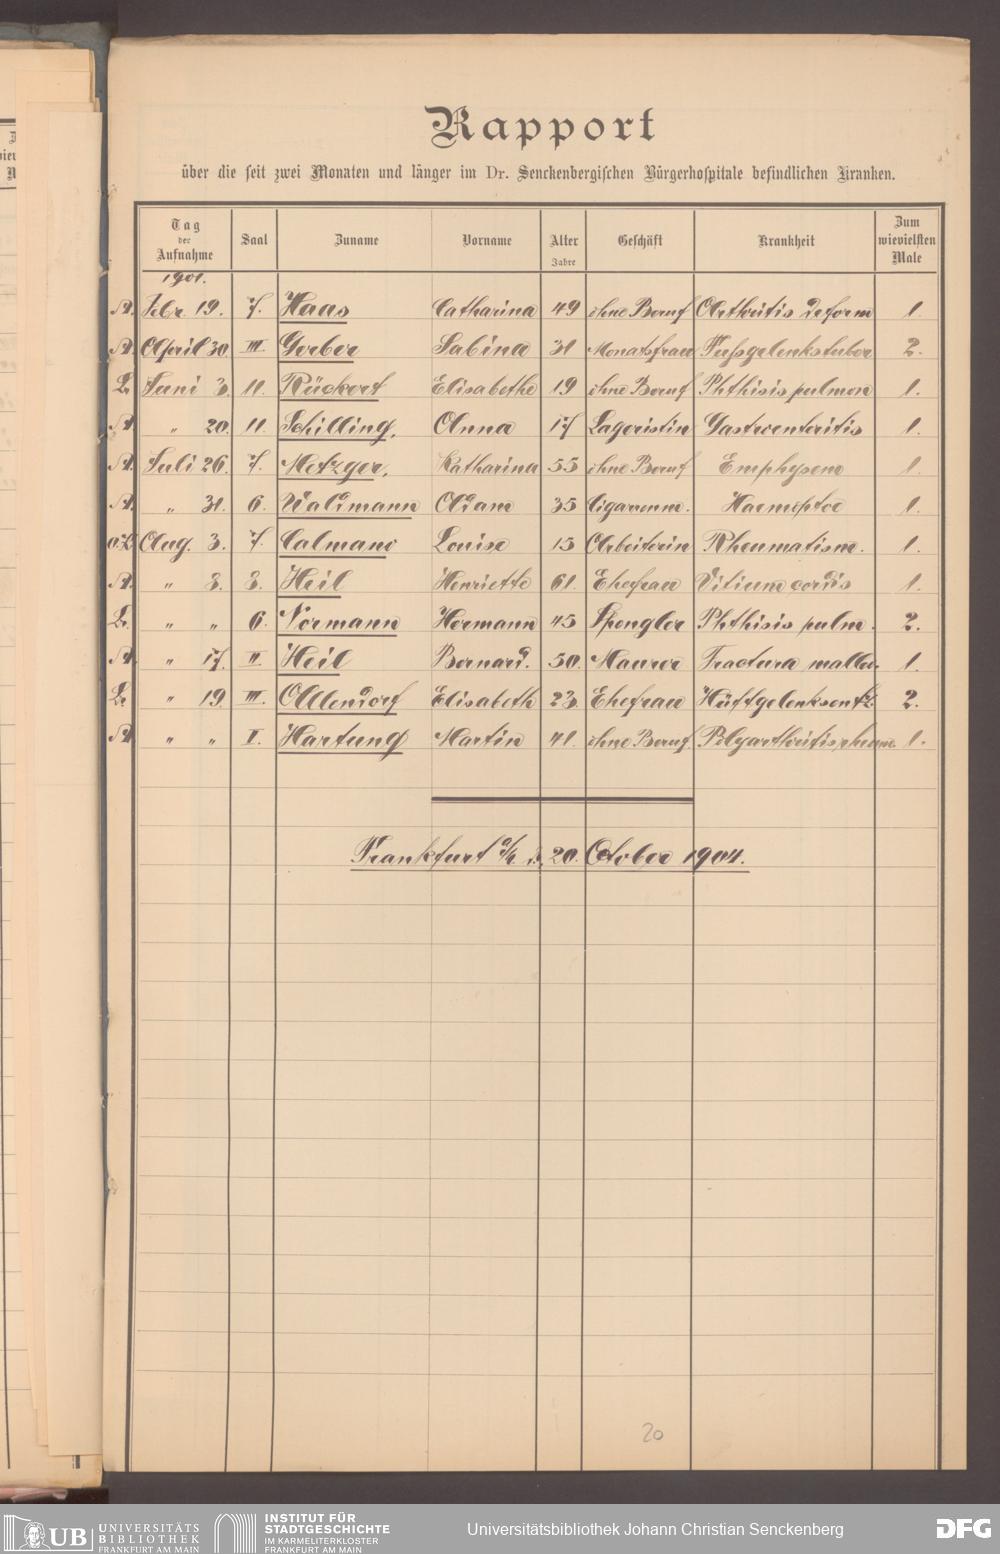 Rapport
über die seit zwei Monaten und länger im Dr. Senckenbergischen Bürgerhospitale befindlichen Kranken.
Tag der Aufnahme | Saal | Zuname | Vorname | Alter Jahre | Geschäft | Krankheit | Zum wievielsten Male
1901.
A. Febr. 19. 7. Haas Catharina 49 ohne Beruf Arthritis deform 1.
A. April 30 III. Gerber Sabina 31 Monatsfrau Fussgelenkstuber 2.
L. Juni 3. 11. Rückert Elisabethe 19 ohne Beruf Phthisis pulmon 1.
A " 20. 11. Schilling. Anna 17 Lageristin Gastroenteritis 1.
A. Juli 26. 7. Metzger. Katharina 55 ohne Beruf Emphysem 1.
A. " 31. 6. Waldmann Adam 35 Cigarrenm. Haemoptoe 1.
Aug. 3. 7. Calmano Louise 15 Arbeiterin Rheumatism. 1.
A. " 3. 3. Heil Henriette 61. Ehefrau Vitium cordis 1.
L. " " 6. Normann Hermann 45 Spengler Phthisis pulm. 2.
A. " 17. II. Heil Bernard. 50. Maurer Fractura malleo. 1.
L. " 19. III. Allendorf Elisabeth 23. Ehefrau Hüftgelenksentz. 2.
A " " I. Hartung Martin 41. ohne Beruf Polyarthritis rheum. 1.
Frankfurt a/M. d. 20. October 1901.
20
UB UNIVERSITÄTS
BIBLIOTHEK
FRANKFURT AM MAIN
INSTITUT FÜR
STADTGESCHICHTE
IM KARMELITERKLOSTER
FRANKFURT AM MAIN
Universitätsbibliothek Johann Christian Senckenberg
DFG